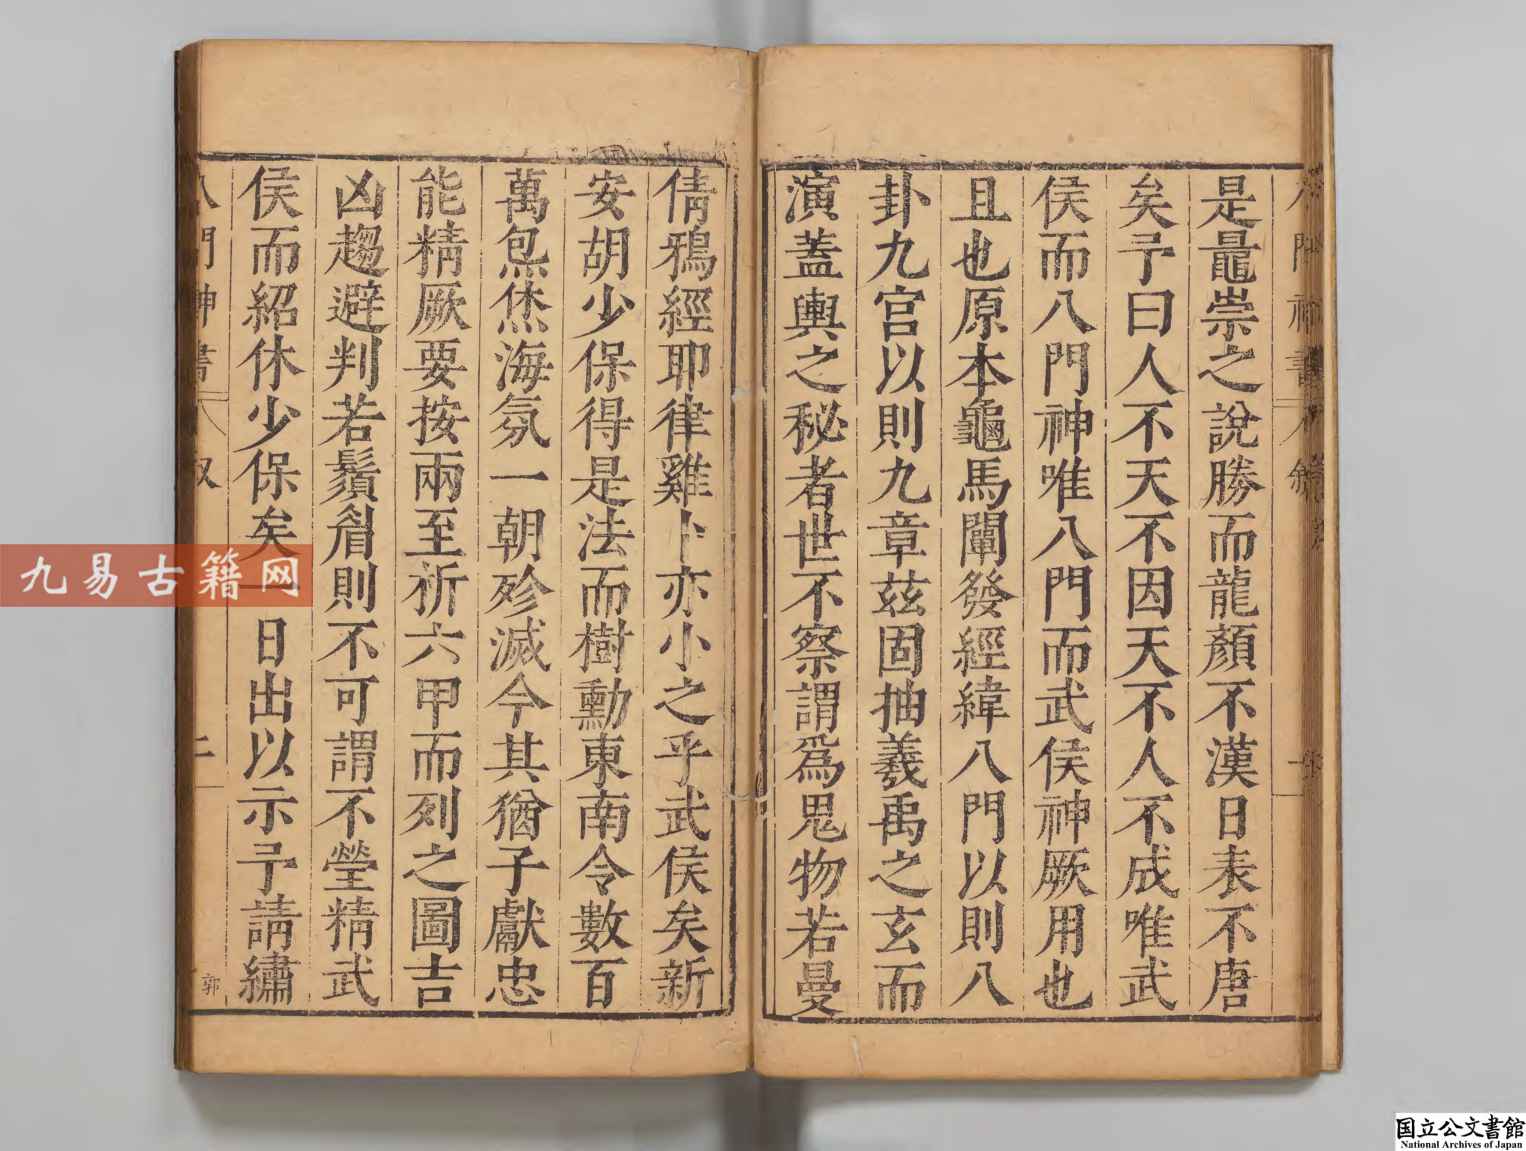 是鼂崇之說勝而龍顏不漢日表不唐
矣予曰人不天不因天不人不成唯武
侯而八門神唯八門而武侯神厥用也
且也原本龜馬闡發經緯八門以則八
卦九宮以則九章茲固抽羲禹之玄而
演蓋輿之秘者世不察謂為鬼物若曼
倩鴉經耶律雞卜亦小之乎武侯矣新
安胡少保得是法而樹勳東南令數百
萬炰烋海氛一朝殄滅今其猶子獻忠
能精厥要按兩至祈六甲而列之圖吉
凶趨避判若鬚眉則不可謂不瑩精武
侯而紹休少保矣一日出以示予請繡
八門神書 叙 二
郭
九易古籍网
国立公文書館
National Archives of Japan